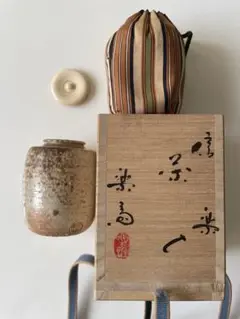 信楽
茶入
楽斎